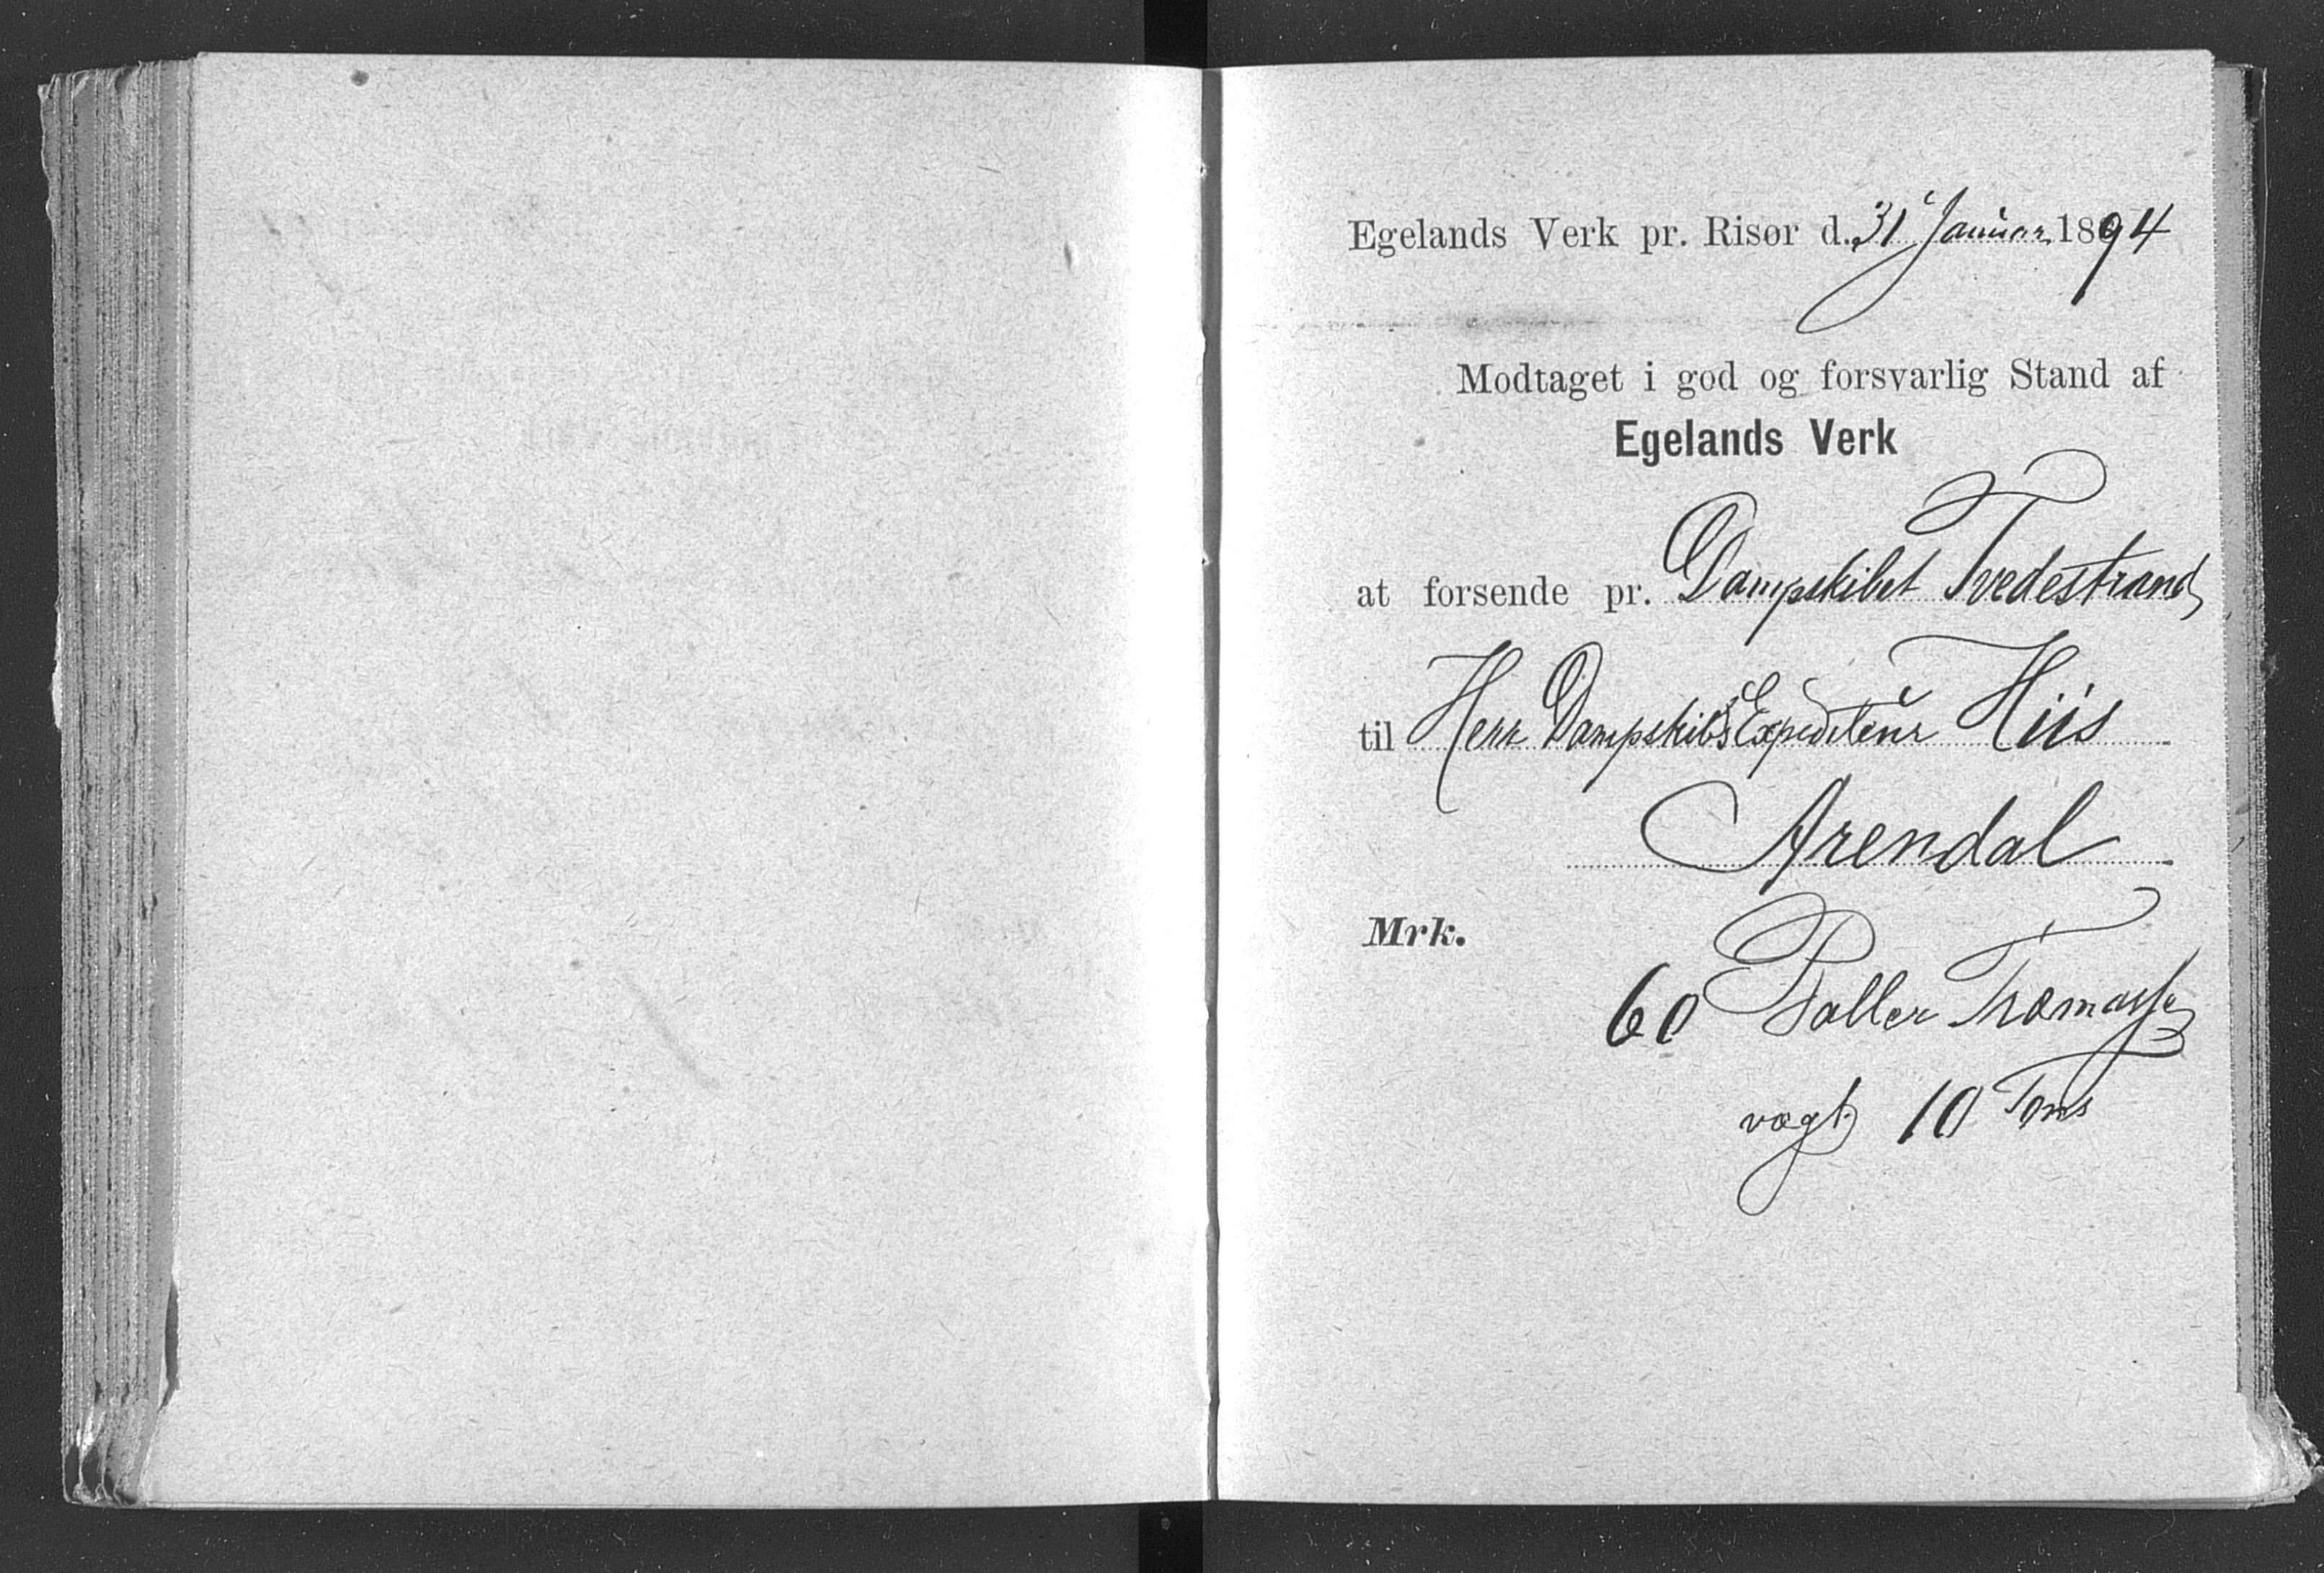 Egelands Verk pr. Risør d. 31 Januar 1894
Modtaget i god og forsvarlig Stand af
Egelands Verk
at forsende pr. Dampskibet Tvedestrand
til Herr Dampskibs Expediteur Hiis
Arendal
Mrk.
60 Baller Træmasse
vægt 10 Tons